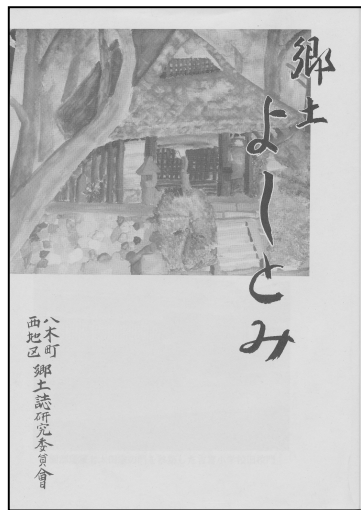 郷土
よしとみ
八木町
西地区
郷土誌研究委員會